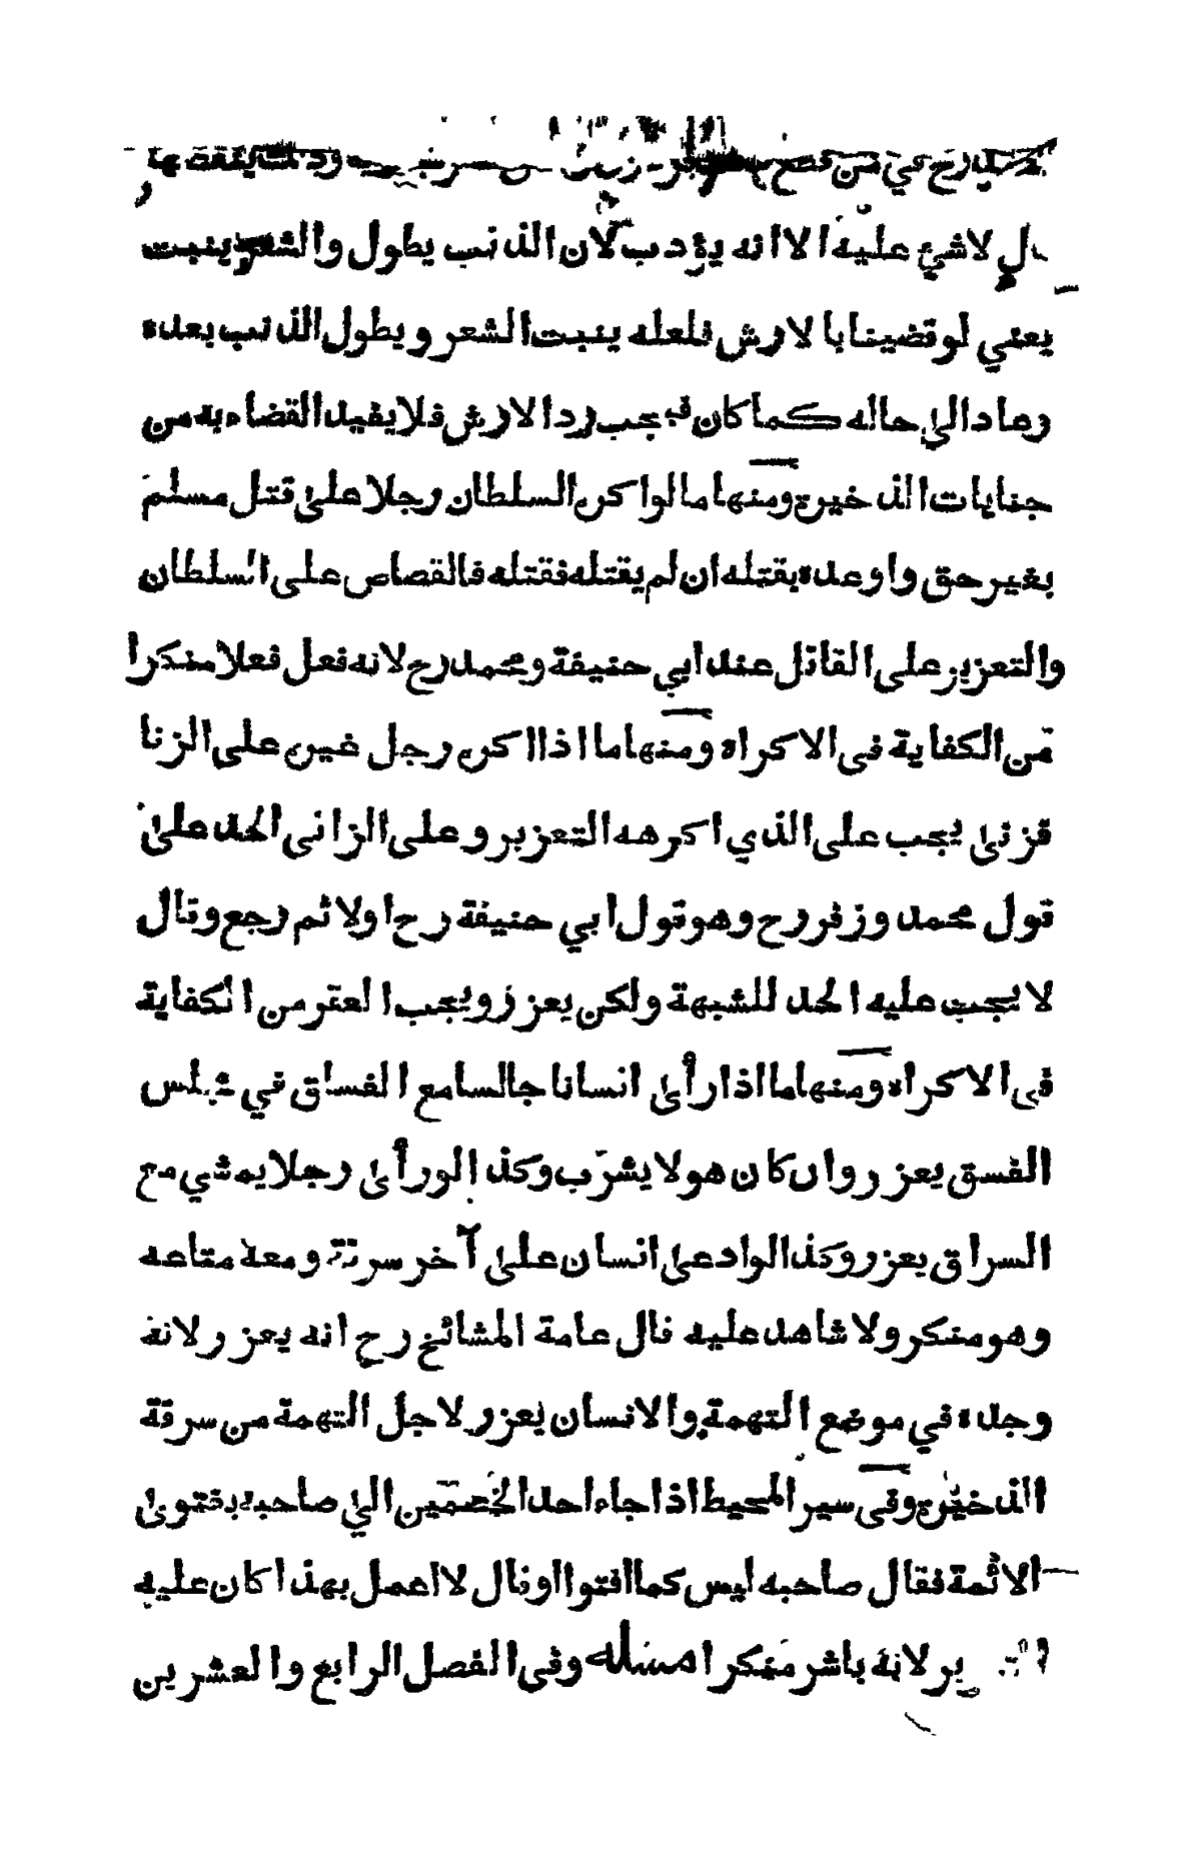 رح في من قطع
لا شئ عليه الا انه يؤدب لان الذنب يطول والشعر ينبت
يعني لو قضينا با لارش فلعله ينبت الشعر ويطول الذنب بعده
وعاد الى حاله كما كان فيجب رد الارش فلا يفيد القضاء به من
جنايات الذخيرة ومنها ما لو اكره السلطان رجلا على قتل مسلم
بغير حق واوعده بقتله ان لم يقتله فقتله فالقصاص على السلطان
والتعزير على القاتل عند ابي حنيفة ومحمد رح لانه فعل فعلا منكرا
من الكفاية في الاكراه ومنها ما اذا اكره رجل غيره على الزنا
فزنى يجب على الذي اكرهه التعزير وعلى الزاني الحد على
قول محمد وزفر رح وهو قول ابي حنيفة رح اولا ثم رجع وقال
لا يجب عليه الحد للشبهة ولكن يعزر ويجب العقر من الكفاية
في الاكراه ومنها ما اذا رأى انسانا جالسا مع الفساق في مجلس
الفسق يعزر وان كان هو لا يشرب وكذا لو رأى رجلا يمشي مع
السراق يعزر وكذا لو ادعى انسان على آخر سرقة ومعه متاعه
وهو منكر ولا شاهد عليه قال عامة المشائخ رح انه يعزر لانه
وجده في موضع التهمة والانسان يعزر لاجل التهمة من سرقة
الذخيرة وفي سير المحيط اذا جاء احد الخصمين الى صاحبه بفتوى
الائمة فقال صاحبه ليس كما افتوا او قال لا اعمل بهذا كان عليه
لانه باشر منكرا مسئله وفي الفصل الرابع والعشرين